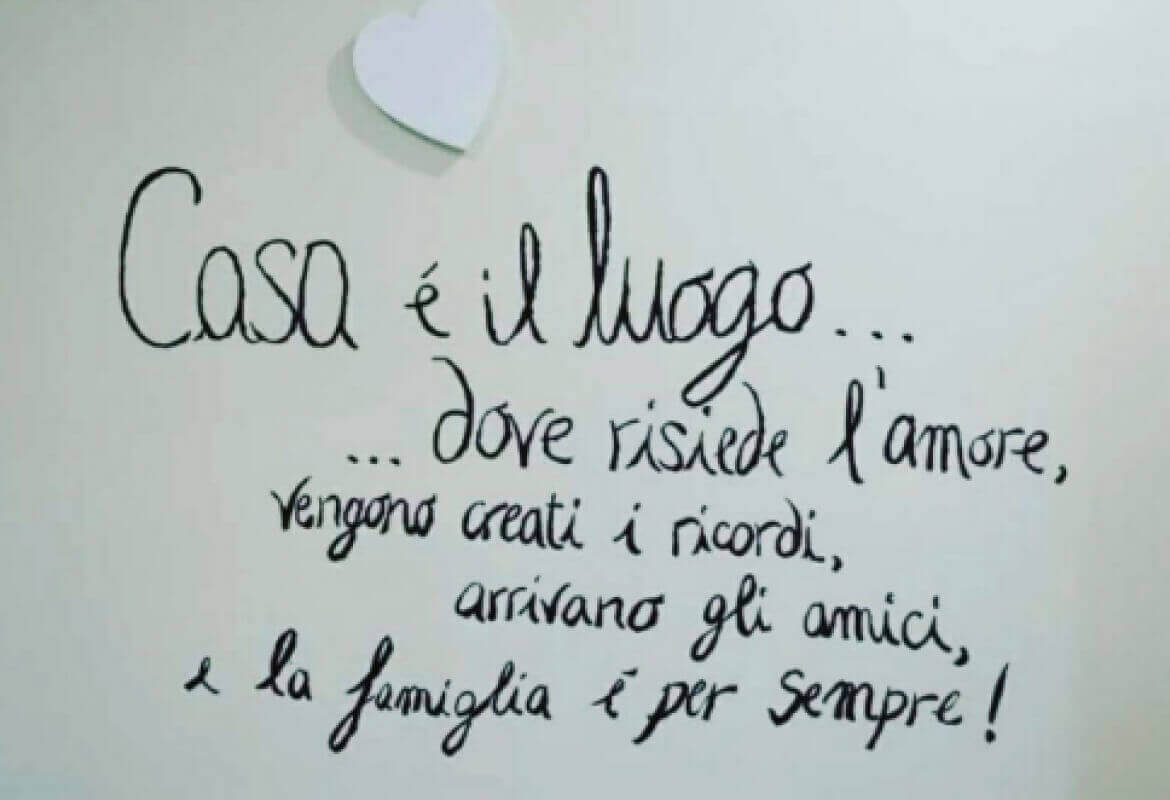 Casa é il luogo...
... dove risiede l'amore,
vengono creati i ricordi,
arrivano gli amici,
e la famiglia é per sempre!